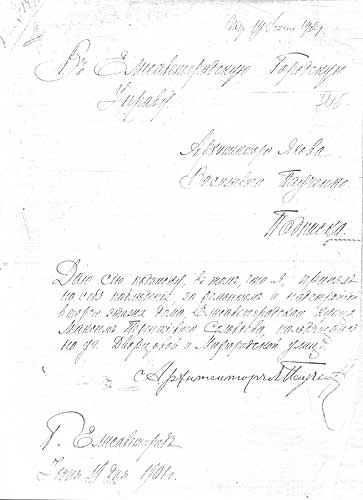 19 Іюня 1901.
Въ Елисаветградскую Городскую
Управу
Архитектора Якова
Васильева Паученко
Подписка.
Даю сію подписку въ томъ, что я, принялъ
на себя наблюденіе, за ремонтомъ и надстройкой
второго этажа дома, Елисаветградскаго Купца
Максима Соловьева,
на уг. Дворцовой и Миргородской улицъ
Архитекторъ Я Паученко
Г. Елисаветградъ
Іюня 19 дня 1901 г.